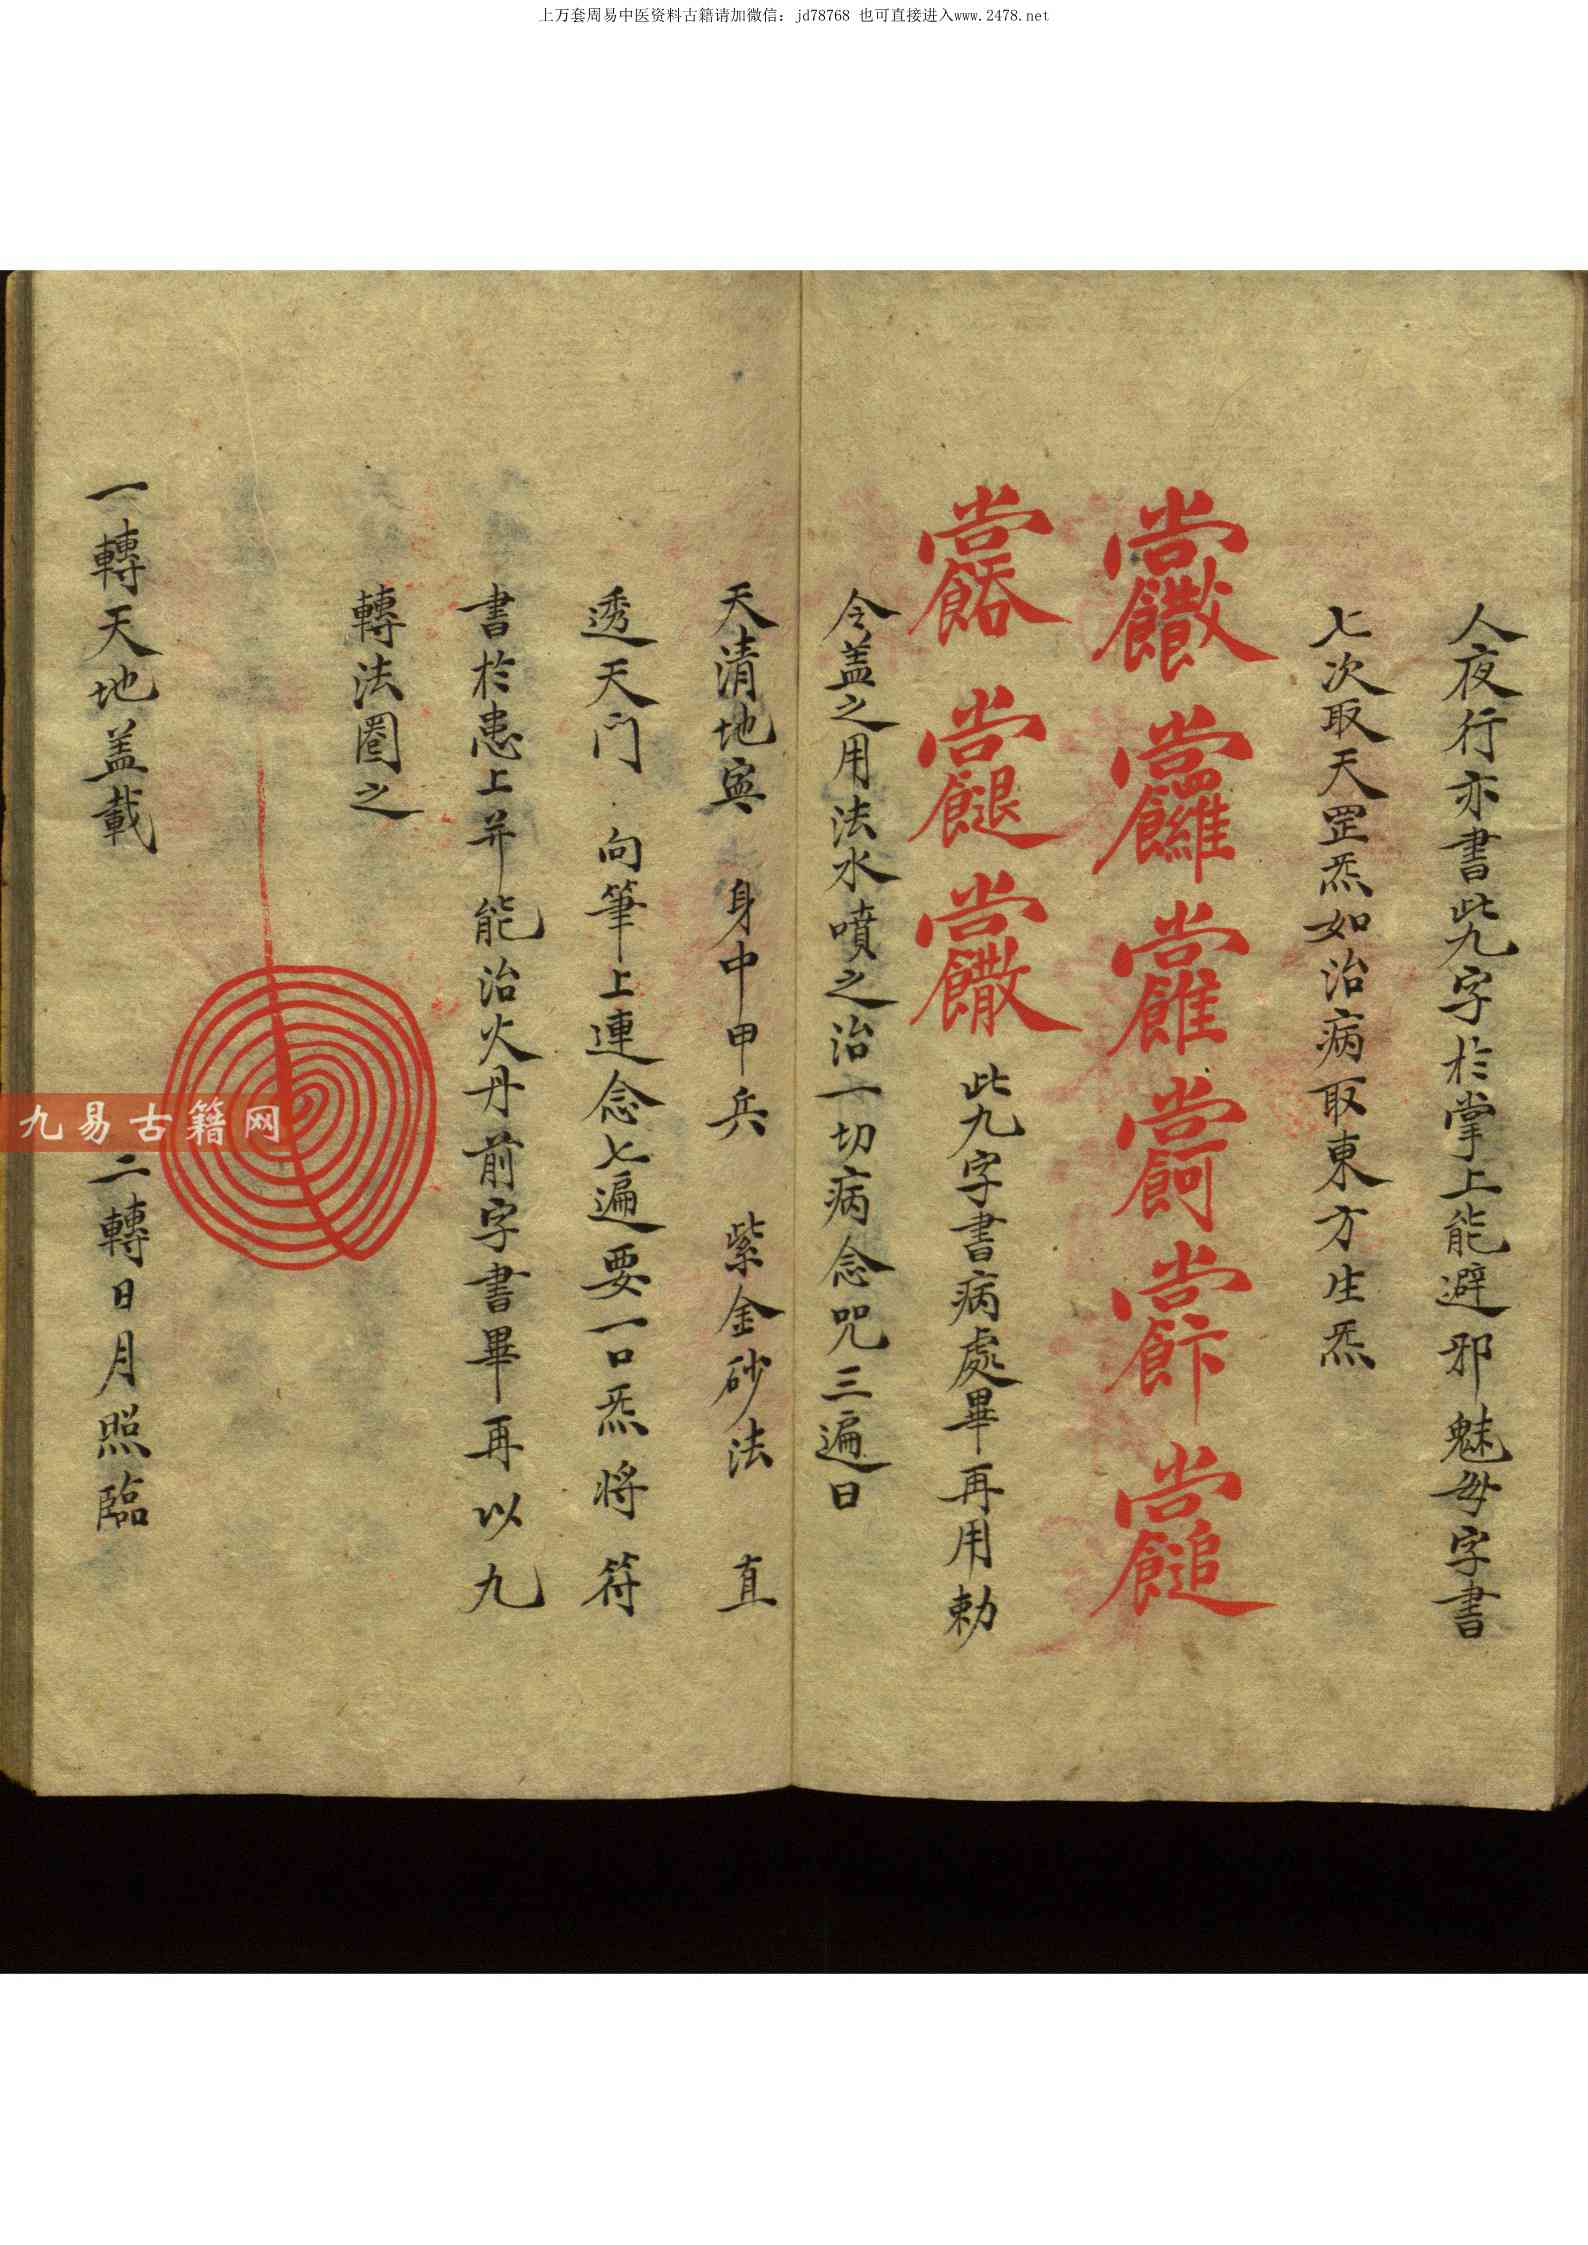 上万套周易中医资料古籍请加微信：jd78768 也可直接进入www.2478.net
人夜行亦書此九字於掌上能避邪魅每字書
七次取天罡炁如治病取東方生炁
此九字書病處畢再用勅
令盖之用法水噴之治一切病念咒三遍曰
天清地寧 身中甲兵 紫金砂法 直
透天门 向筆上連念七遍要一口炁将符
書於患上并能治火丹前字書畢再以九
轉法圈之
一轉天地盖載 二轉日月照臨
九易古籍网